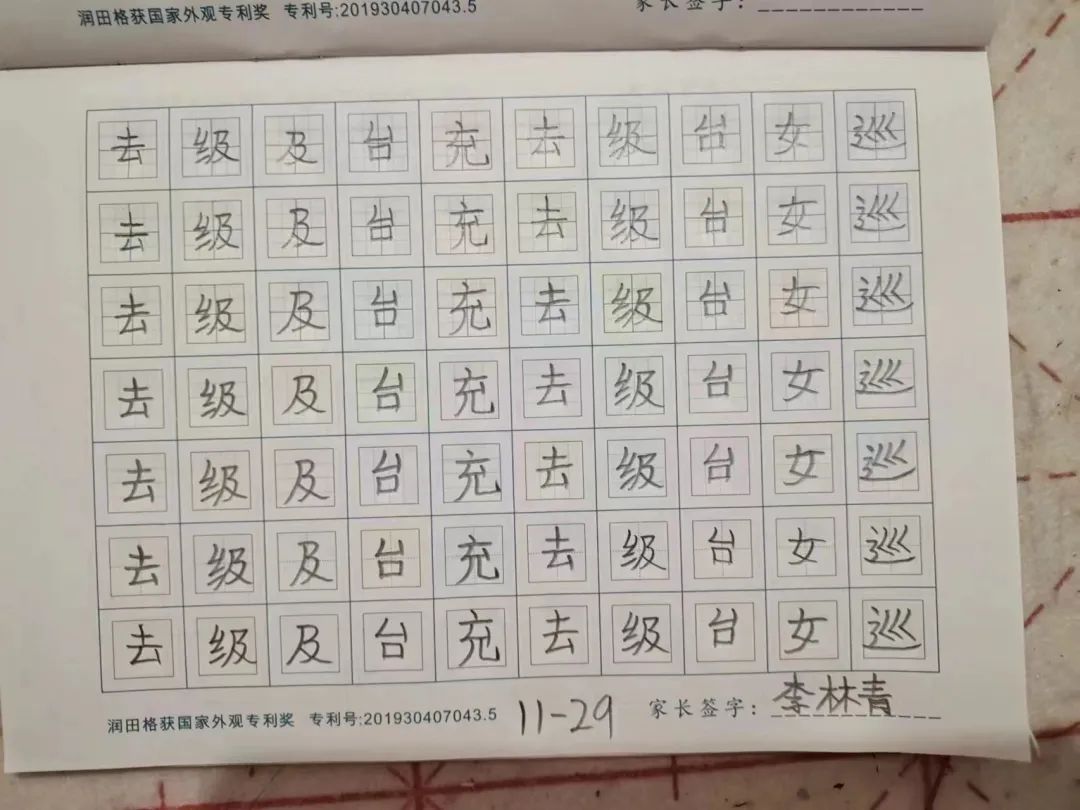 润田格获国家外观专利奖 专利号:201930407043.5 家长签字:
去 级 及 台 充 去 级 台 女 巡
去 级 及 台 充 去 级 台 女 巡
去 级 及 台 充 去 级 台 女 巡
去 级 及 台 充 去 级 台 女 巡
去 级 及 台 充 去 级 台 女 巡
去 级 及 台 充 去 级 台 女 巡
去 级 及 台 充 去 级 台 女 巡
润田格获国家外观专利奖 专利号:201930407043.5 11-29 家长签字:李林青